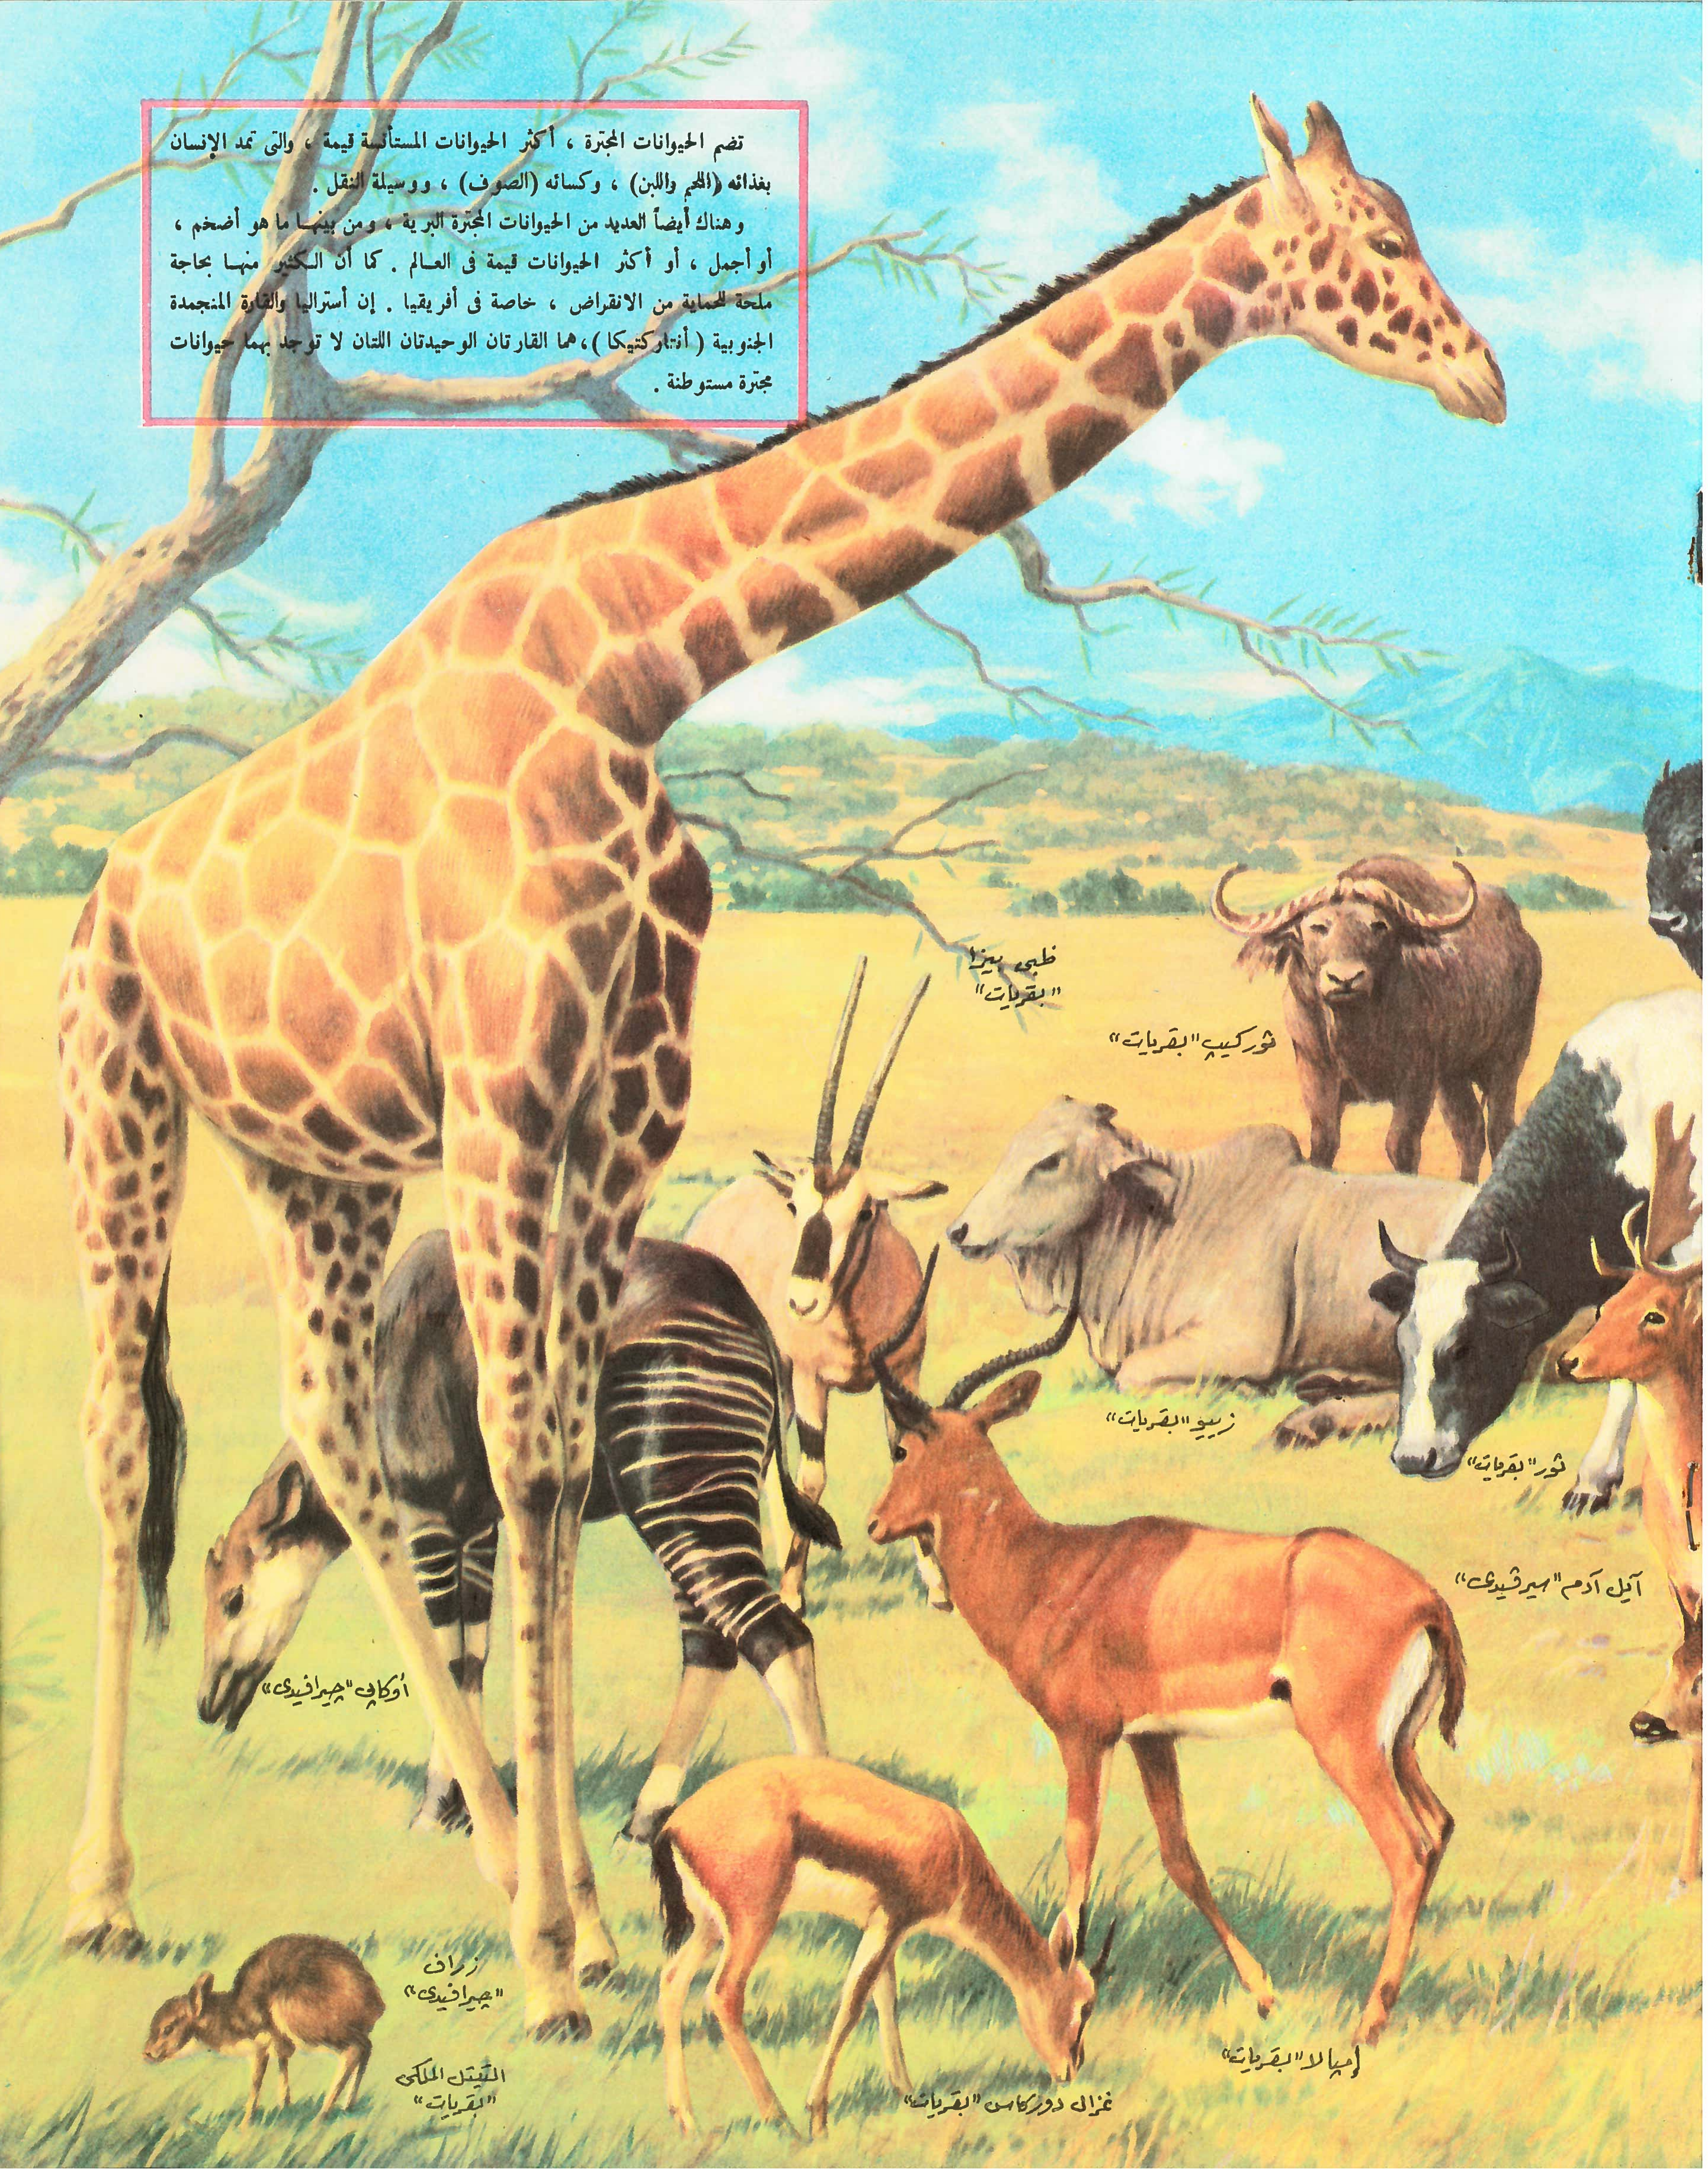 تضم الحيوانات المجترة ، أكثر الحيوانات المستأنسة قيمة ، والتى تمد الإنسان
بغذائه (اللحم واللبن) ، وكسائه (الصوف) ، ووسيلة النقل .
وهناك أيضاً العديد من الحيوانات المجترة البرية ، ومن بينها ما هو أضخم ،
أو أجمل ، أو أكثر الحيوانات قيمة فى العالم . كما أن الكثير منها بحاجة
ملحة للحماية من الانقراض ، خاصة فى أفريقيا . إن أستراليا والقارة المنجمدة
الجنوبية (أنتاركتيكا)، هما القارتان الوحيدتان اللتان لا توجد بهما حيوانات
مجترة مستوطنة .
ظبى بيزا
"بقريات"
ثور كيپ "بقريات"
زيبو "بقريات"
ثور "بقريات"
آيل آدم "سيرڤيدى"
أوكاپى "چيرافيدى"
زراف
"چيرافيدى"
التيتل الملكى
"بقريات"
غزال دوركاس "بقريات"
إمپالا "بقريات"